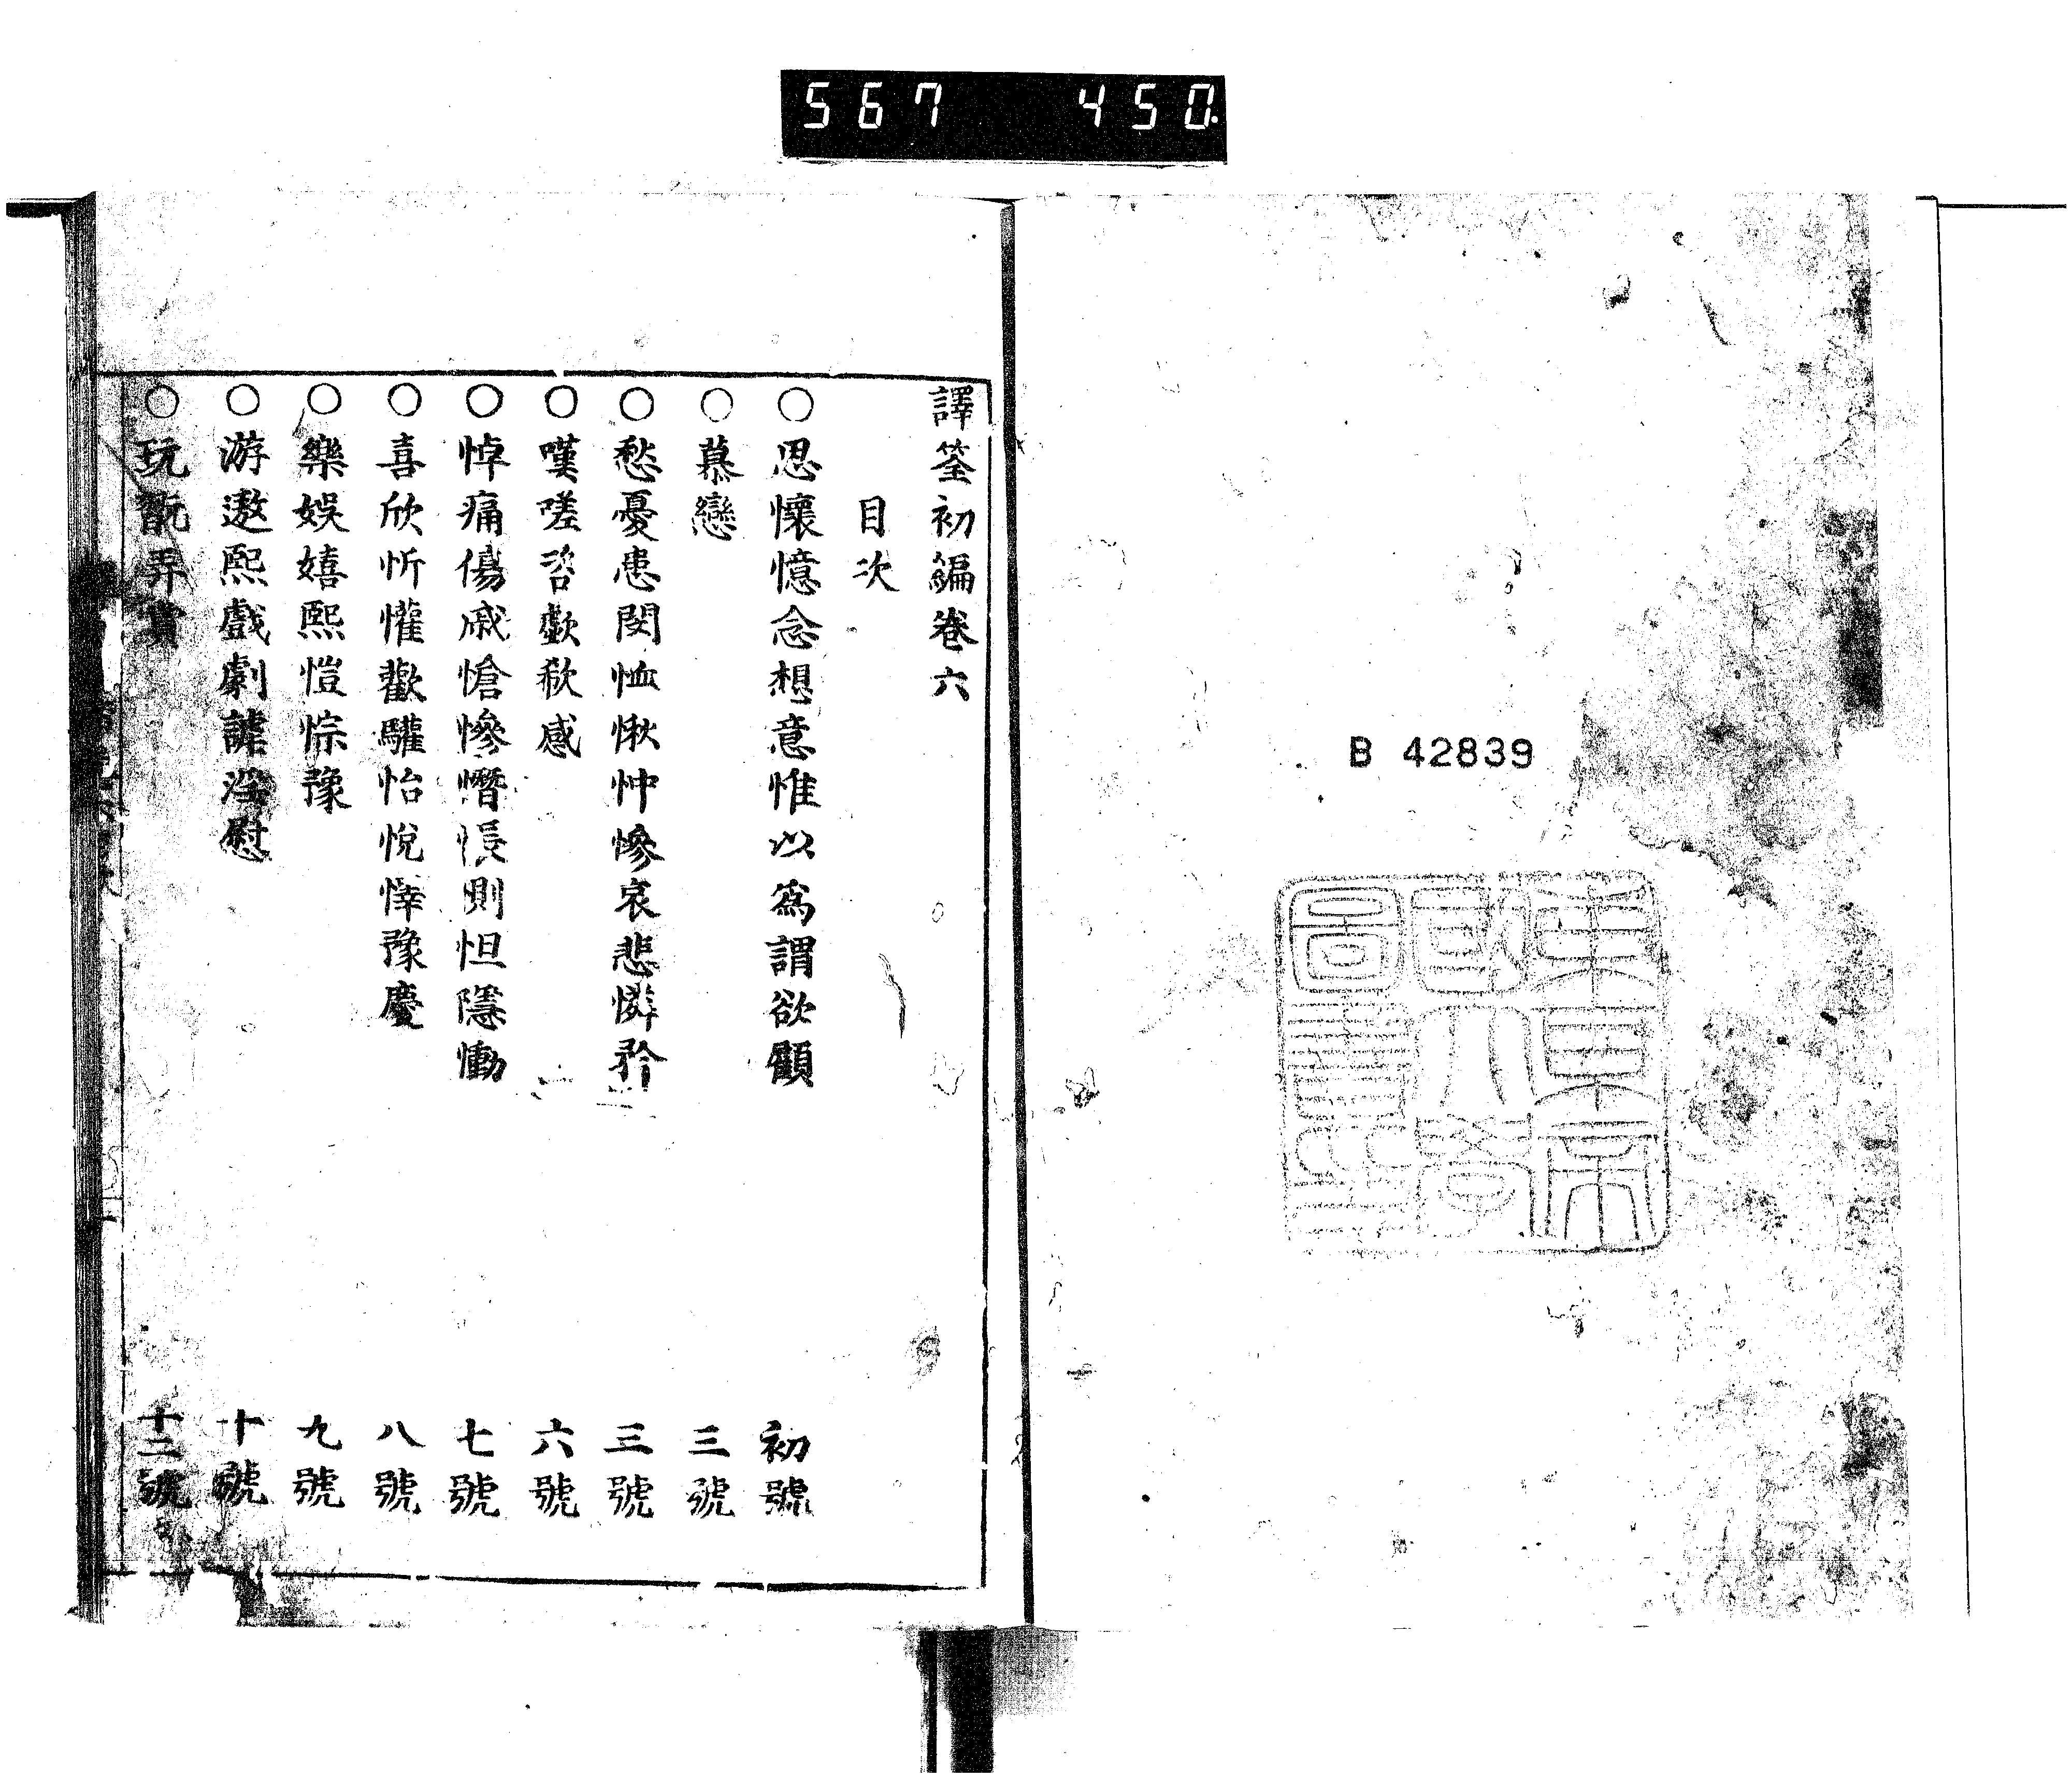 567 450.
B 42839
東京帝
國大學
圖書印
譯筌初編卷六
目次
○思懷憶念想意惟以爲謂欲願 初號
○慕戀 三號
○愁憂患閔恤愀忡慘哀悲憐矜 三號
○嘆嗟咨歎欷感 六號
○悼痛傷戚愴慘憯悵惻怛隱慟 七號
○喜欣忻懽歡驩怡悅悻豫慶 八號
○樂娛嬉熙愷悰豫 九號
○游遨熙戲劇謔淫慰 十號
○玩翫弄賞 十二號